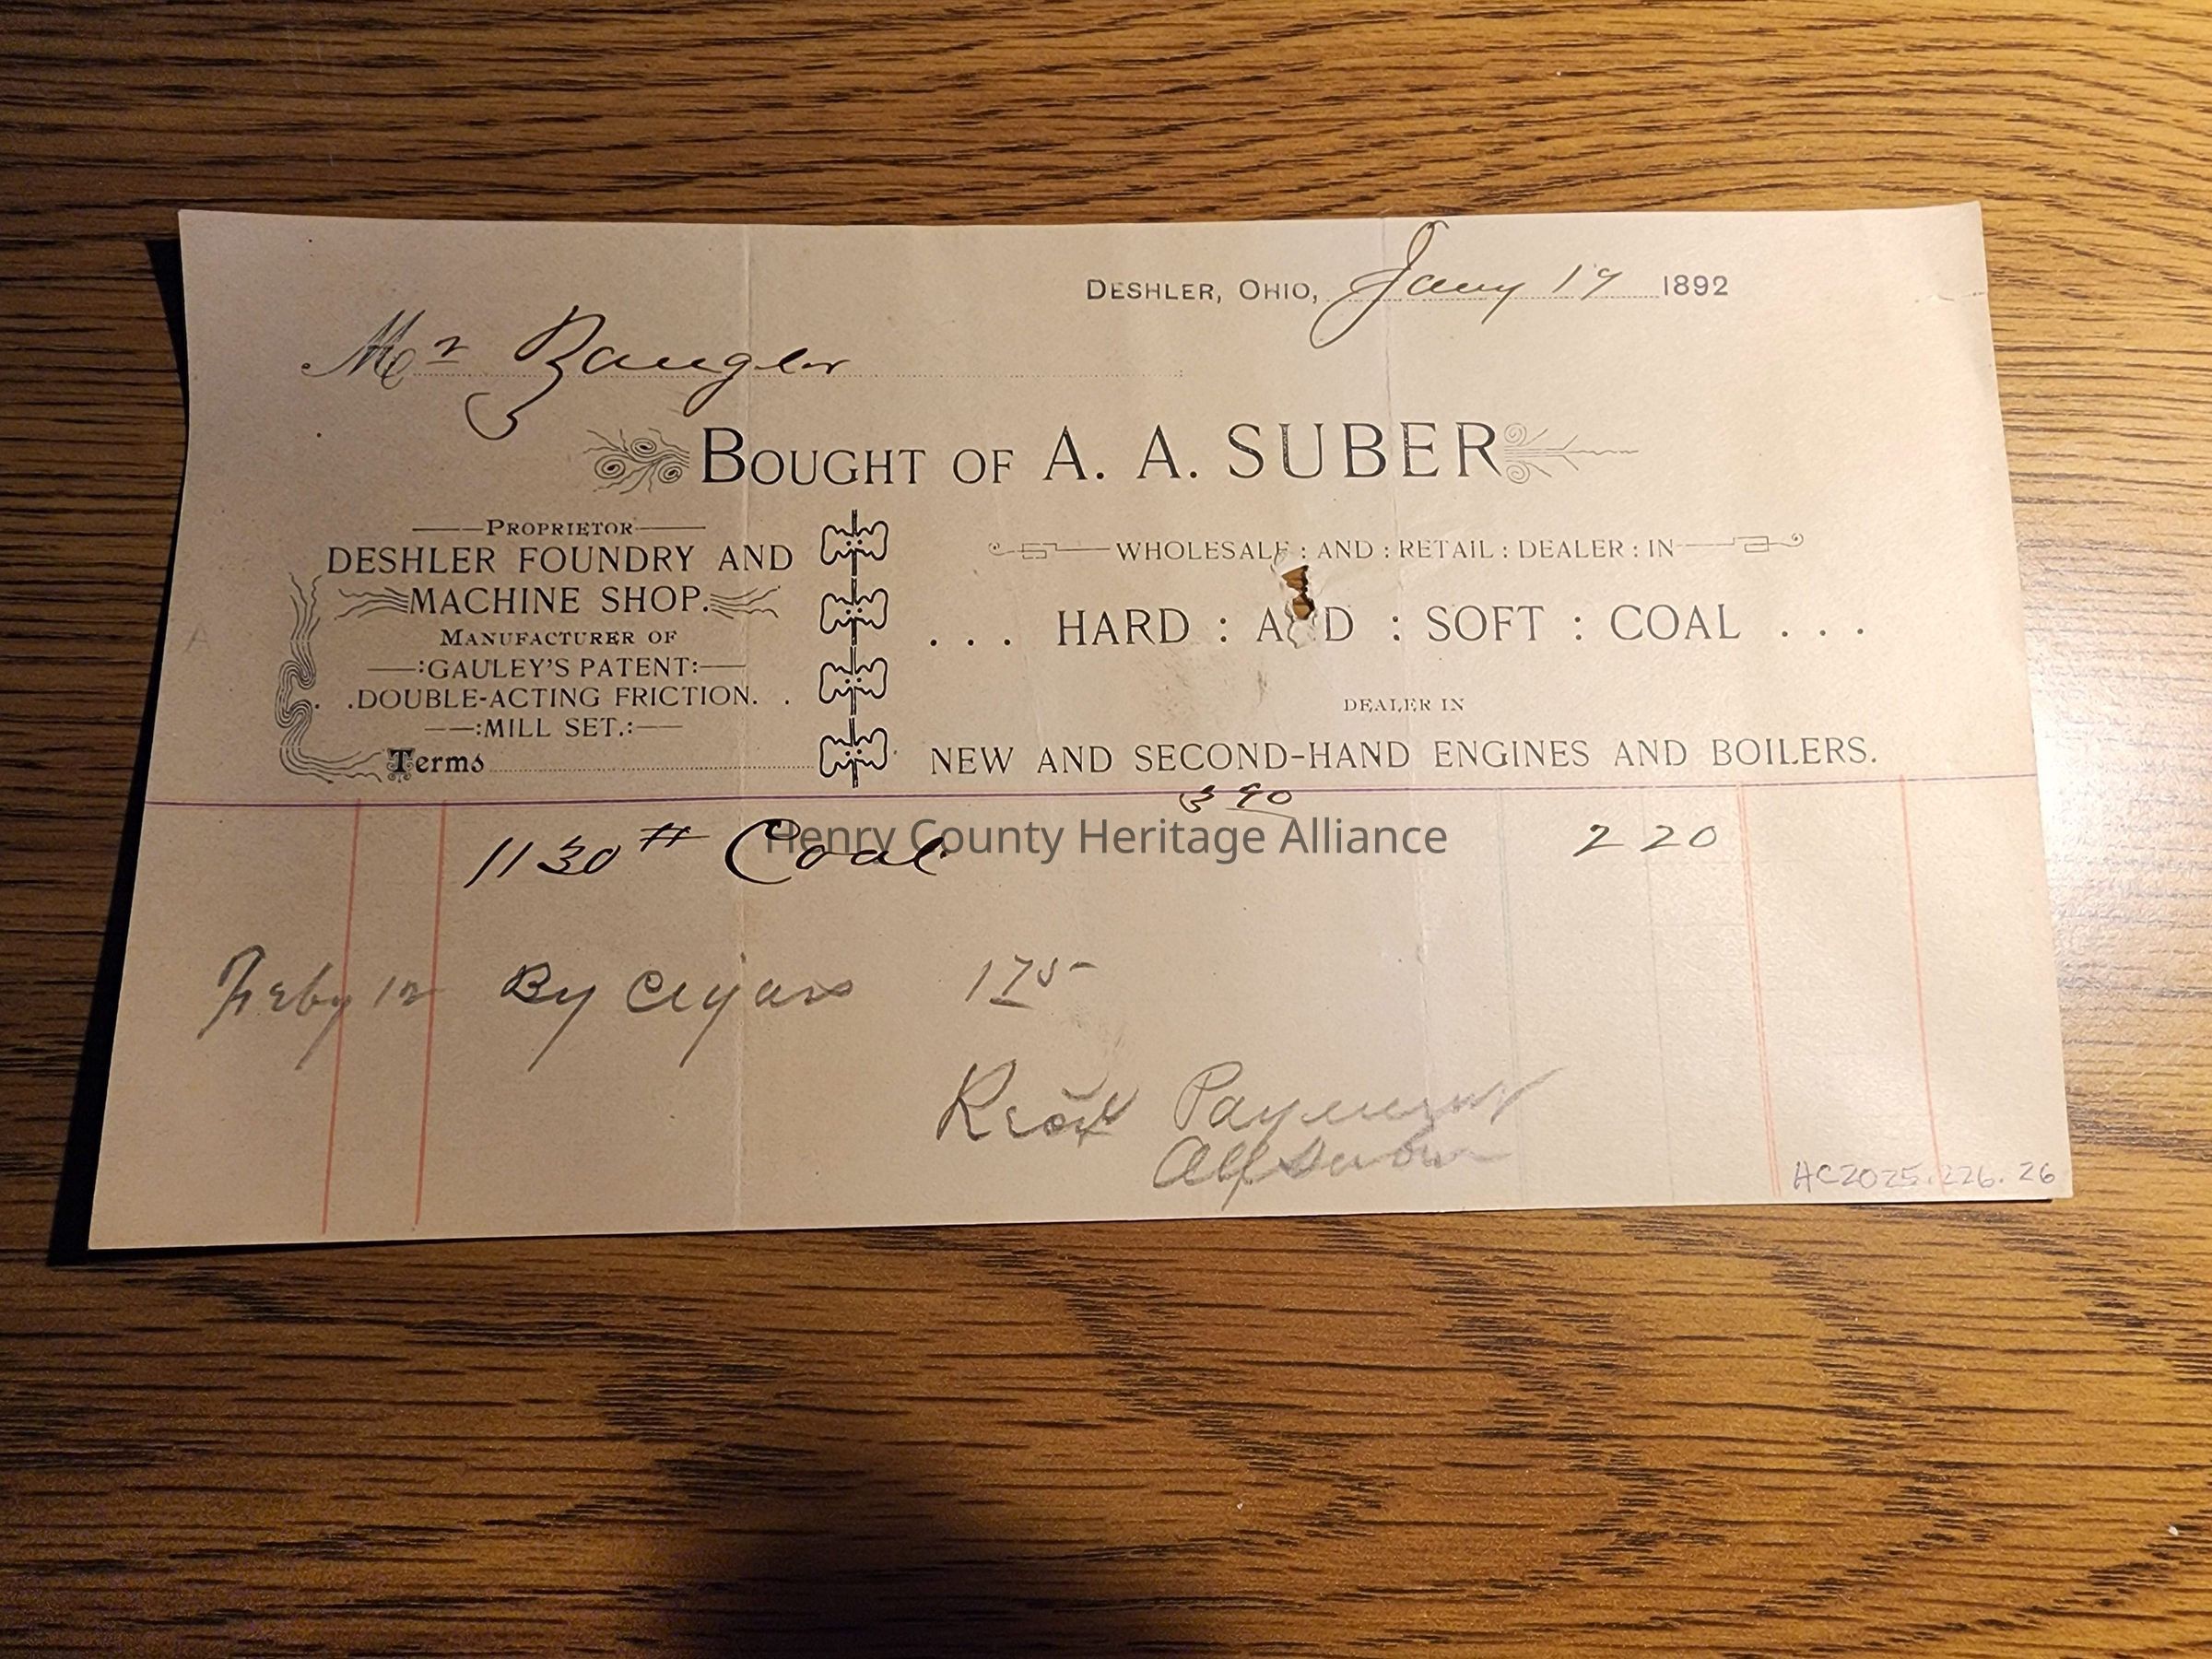 DESHLER, OHIO, Jany 19 1892
Mr Bangler
BOUGHT OF A. A. SUBER
PROPRIETOR
DESHLER FOUNDRY AND
MACHINE SHOP.
MANUFACTURER OF
:GAULEY'S PATENT:
. .DOUBLE-ACTING FRICTION. .
:MILL SET.:
Terms
WHOLESALE : AND : RETAIL : DEALER : IN
. . . HARD : AND : SOFT : COAL . . .
DEALER IN
NEW AND SECOND-HAND ENGINES AND BOILERS.
390
1130 # Coal 2 20
Henry County Heritage Alliance
Feby 12 By Cigars 175
Recd Payment
HC2025.226.26